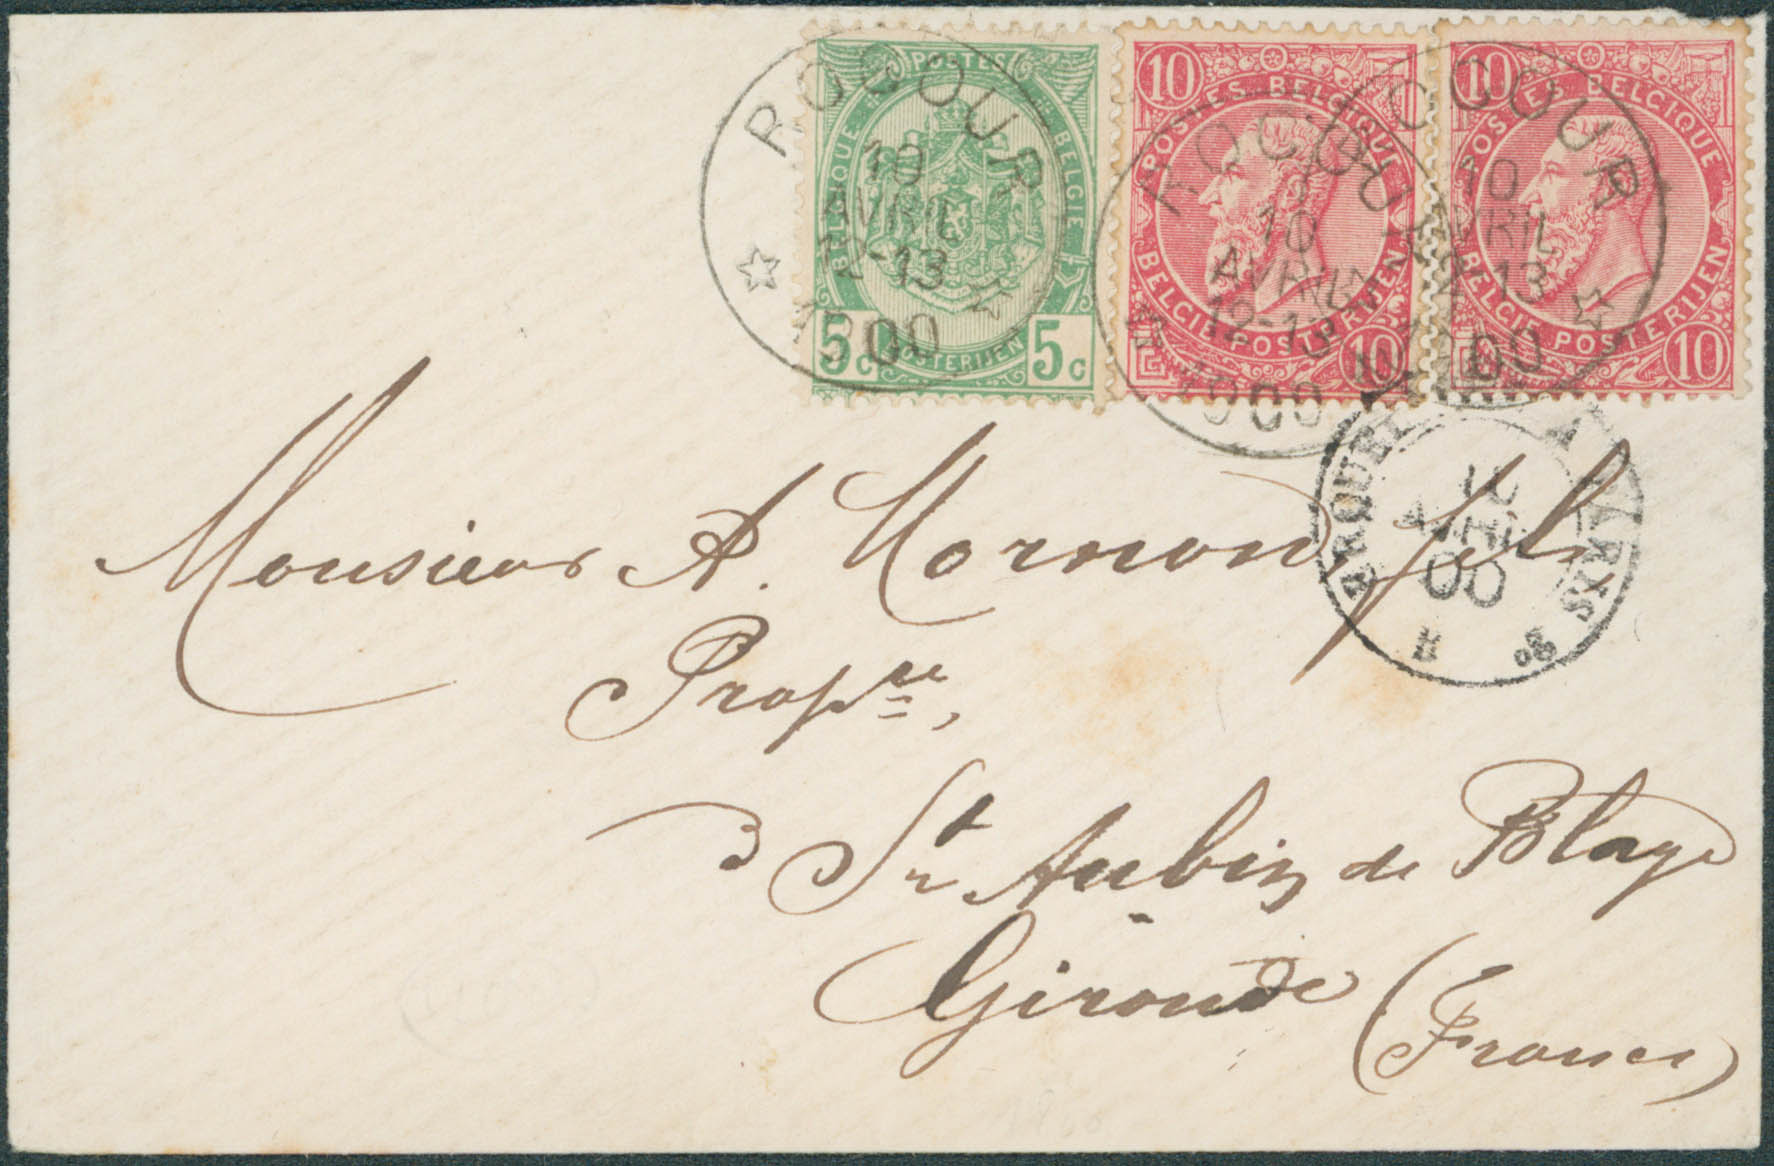 POSTES
BELGIQUE BELGIE
5c POSTERIJEN 5c
10
POSTES BELGIQUE
BELGIE POSTERIJEN
10
10
POSTES BELGIQUE
BELGIE POSTERIJEN
10
ROCOUR
10
AVRIL
12-13
1900
ROCOUR
10
AVRIL
12-13
1900
ROCOUR
10
AVRIL
12-13
1900
10
AVRIL
00
Monsieur A. Mornon fils,
Propre,
à St Aubin de Blaye
Gironde (France)